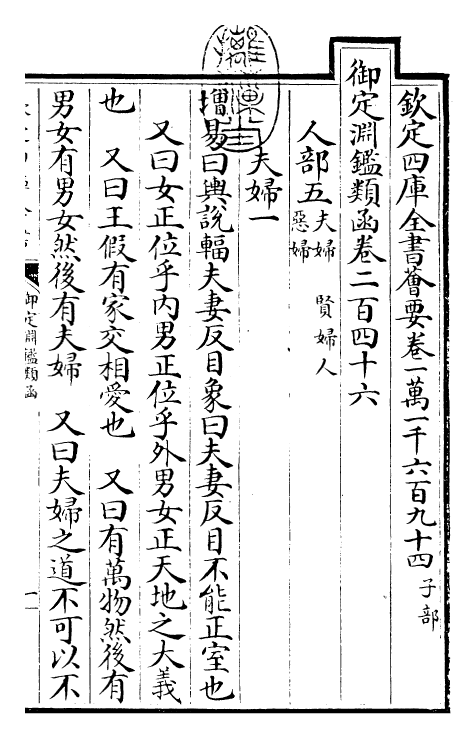 欽定四庫全書薈要卷一萬一千六百九十四 子部
御定淵鑑類函卷二百四十六
人部五 夫婦 賢婦人 惡婦
夫婦一
增易曰輿說輻夫妻反目象曰夫妻反目不能正室也
又曰女正位乎內男正位乎外男女正天地之大義
也 又曰王假有家交相愛也 又曰有萬物然後有
男女有男女然後有夫婦 又曰夫婦之道不可以不
御定淵鑑類函